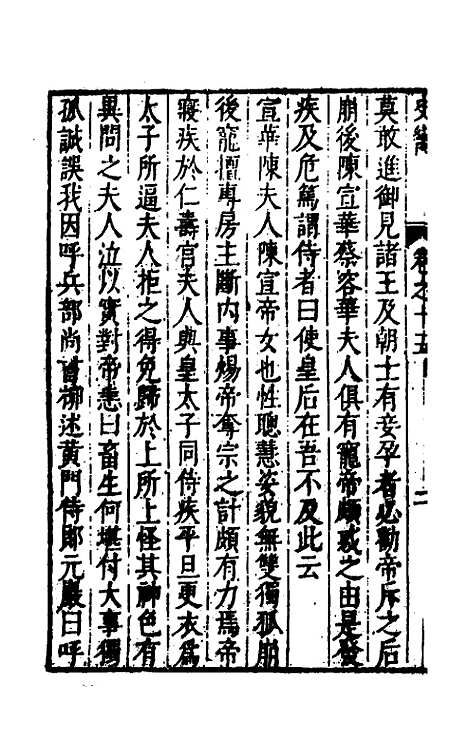 史纂 卷之十五 二
莫敢進御見諸王及朝士有妾孕者必勸帝斥之后
崩後陳宣華蔡容華夫人俱有寵帝頗惑之由是發
疾及危篤謂侍者曰使皇后在吾不及此云
宣華陳夫人陳宣帝女也性聰慧姿貌無雙獨孤崩
後寵僭專房主斷内事煬帝奪宗之計頗有力焉帝
寢疾於仁壽宮夫人與皇太子同侍疾平旦更衣爲
太子所逼夫人拒之得免歸於上所上怪其神色有
異問之夫人泣以實對帝恚曰畜生何堪付大事獨
孤誠誤我因呼兵部尚書柳述黃門侍郎元巖曰呼